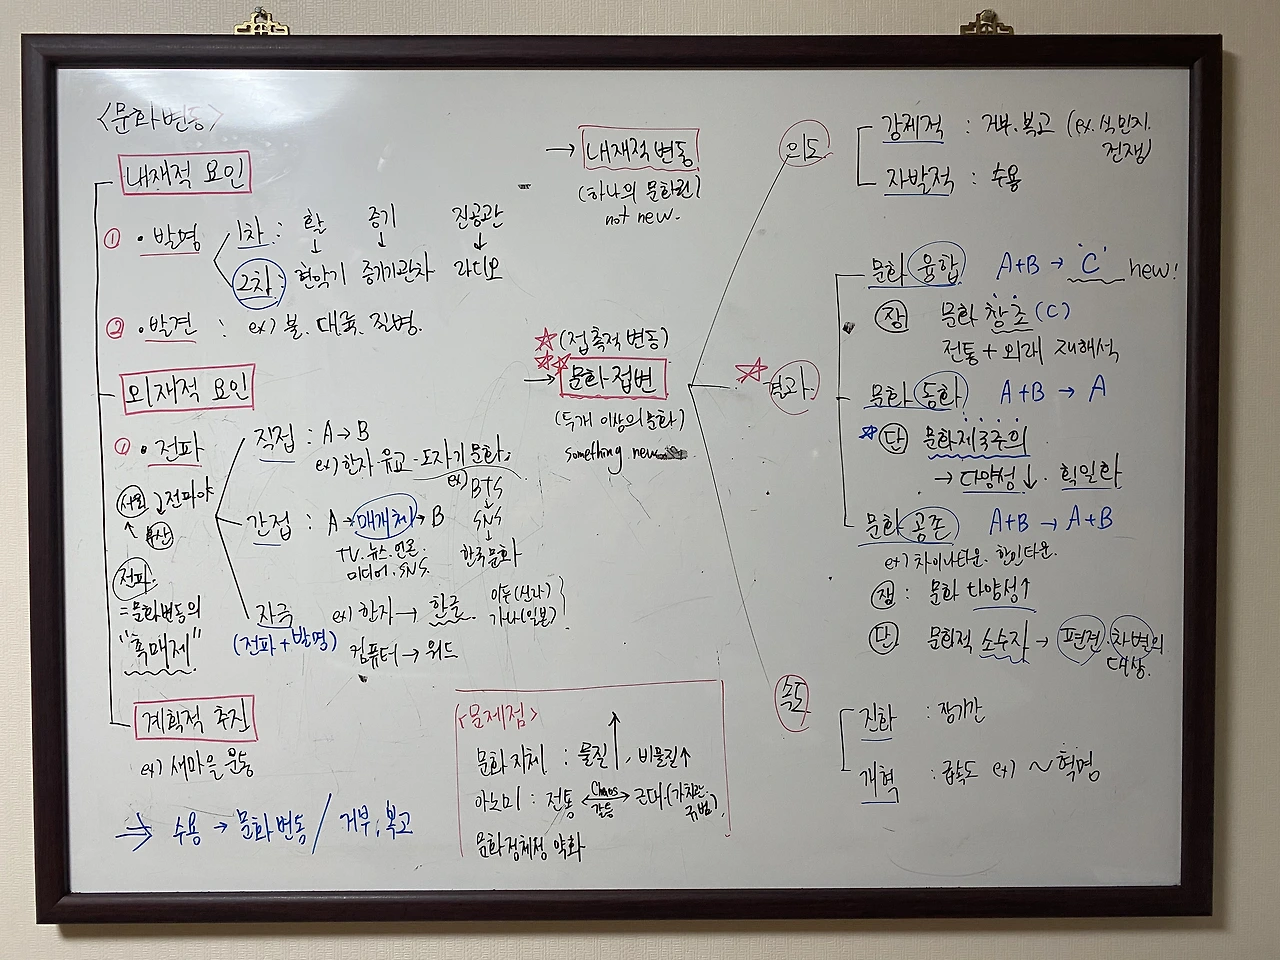 <문화변동>
내재적 요인
① · 발명
1차 : 활 증기 진공관
↓ ↓ ↓
2차 : 현악기 증기기관차 라디오
② · 발견 : ex) 불. 대륙. 질병.
외재적 요인
① · 전파
직접 : A → B
ex) 한자 유교 · 도자기 문화.
간접 : A → 매개체 → B
TV. 뉴스. 언론.
미디어. SNS.
ex) BTS
↓
SNS
↓
한국문화
자극
(전파 + 발명)
ex) 한자 → 한글. 이두(신라)
가나(일본)
컴퓨터 → 워드
전파.
= 문화변동의
"촉매제"
계획적 추진
ex) 새마을 운동
⇒ 수용 → 문화변동 / 거부, 복고
→ 내재적 변동
(하나의 문화권)
not new.
☆ (접촉적 변동)
☆☆
→ 문화접변
(두개 이상의 문화)
something new
<문제점>
문화 지체 : 물질↑, 비물질↑
아노미 : 전통 ↔ 근대.(가치관. 규범).
Chaos
갈등
문화정체성 약화
의도
강제적 : 거부. 복고 (ex. 식민지.
전쟁)
자발적 : 수용
☆ 결과.
문화 융합 A+B → 'C' new!
장 문화 창조 (C)
전통 + 외래 재해석
문화 동화 A+B → A
☆ 단 문화제국주의
→ 다양성↓. 획일화
문화 공존 A+B → A+B
ex) 차이나타운. 한인타운.
장 : 문화 다양성↑
단 : 문화적 소수자 → 편견. 차별의
대상.
속도
진화 : 장기간
개혁 : 급속도 ex) ~혁명